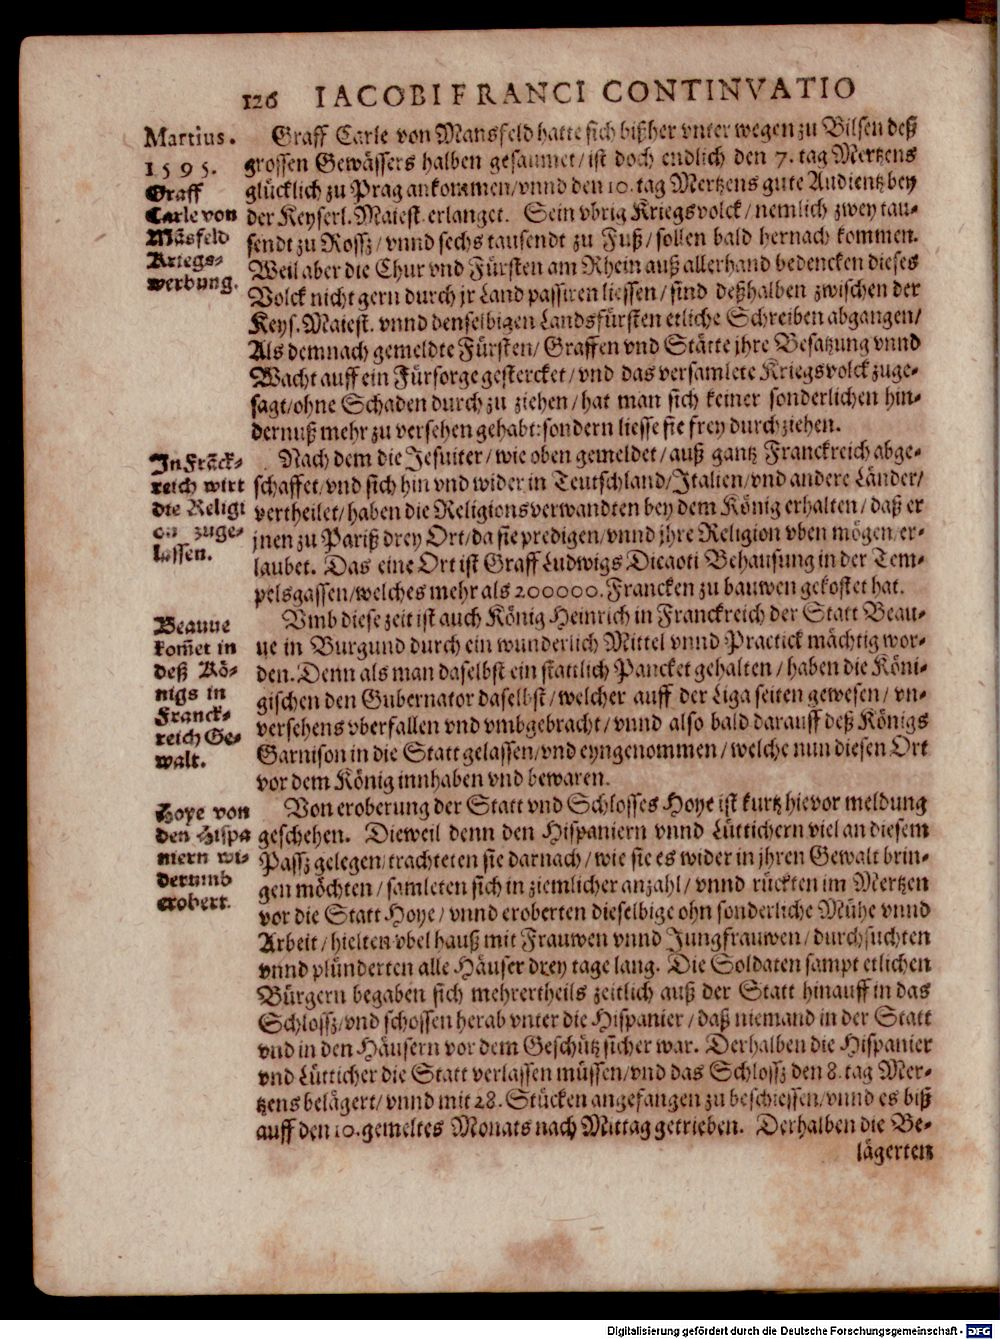 126 IACOBI FRANCI CONTINVATIO
Martius.
1595.
Graff
Carle von
Mãsfeld
Kriegs-
werbung.
Graff Carle von Mansfeld hatte sich bißher vnter wegen zu Bilsen deß
grossen Gewässers halben gesaumet/ ist doch endlich den 7. tag Mertzens
glücklich zu Prag ankommen/ vnnd den 10. tag Mertzens gute Audientz bey
der Keyserl. Maiest. erlanget. Sein vbrig Kriegsvolck/ nemlich zwey tau-
sendt zu Rossz/ vnnd sechs tausendt zu Fuß/ sollen bald hernach kommen.
Weil aber die Chur vnd Fürsten am Rhein auß allerhand bedencken dieses
Volck nicht gern durch jr Land passiren liessen/ sind deßhalben zwischen der
Keys. Maiest. vnnd denselbigen Landsfürsten etliche Schreiben abgangen/
Als demnach gemeldte Fürsten/ Graffen vnd Stätte jhre Besatzung vnnd
Wacht auff ein Fürsorge gestercket/ vnd das versamlete Kriegsvolck zuge-
sagt/ ohne Schaden durch zu ziehen/ hat man sich keiner sonderlichen hin-
dernuß mehr zu versehen gehabt: sondern liesse sie frey durchziehen.
In Frãck-
reich wirt
die Religi
on zuge-
lassen.
Nach dem die Jesuiter/ wie oben gemeldet/ auß gantz Franckreich abge-
schaffet/ vnd sich hin vnd wider in Teutschland/ Italien/ vnd andere Länder/
vertheilet/ haben die Religionsverwandten bey dem König erhalten/ daß er
jnen zu Pariß drey Ort/ da sie predigen/ vnnd jhre Religion vben mögen/ er-
laubet. Das eine Ort ist Graff Ludwigs Dicaoti Behausung in der Tem-
pelsgassen/ welches mehr als 200000. Francken zu bauwen gekostet hat.
Beauue
kom̃et in
deß Kö-
nigs in
Franck-
reich Ge-
walt.
Vmb diese zeit ist auch König Heinrich in Franckreich der Statt Beau-
ue in Burgund durch ein wunderlich Mittel vnnd Practick mächtig wor-
den. Denn als man daselbst ein stattlich Pancket gehalten/ haben die Köni-
gischen den Gubernator daselbst/ welcher auff der Liga seiten gewesen/ vn-
versehens vberfallen vnd vmbgebracht/ vnnd also bald darauff deß Königs
Garnison in die Statt gelassen/ vnd eyngenommen/ welche nun diesen Ort
vor dem König innhaben vnd bewaren.
Hoye von
den Hispa
niern wi-
derumb
erobert.
Von eroberung der Statt vnd Schlosses Hoye ist kurtz hievor meldung
geschehen. Dieweil denn den Hispaniern vnnd Lüttichern viel an diesem
Passz gelegen/ trachteten sie darnach/ wie sie es wider in jhren Gewalt brin-
gen möchten/ samleten sich in ziemlicher anzahl/ vnnd rückten im Mertzen
vor die Statt Hoye/ vnnd eroberten dieselbige ohn sonderliche Mühe vnnd
Arbeit/ hielten vbel hauß mit Frauwen vnnd Jungfrauwen/ durchsuchten
vnnd plünderten alle Häuser drey tage lang. Die Soldaten sampt etlichen
Bürgern begaben sich mehrertheils zeitlich auß der Statt hinauff in das
Schlossz/ vnd schossen herab vnter die Hispanier/ daß niemand in der Statt
vnd in den Häusern vor dem Geschütz sicher war. Derhalben die Hispanier
vnd Lütticher die Statt verlassen müssen/ vnd das Schlossz den 8. tag Mer-
tzens belägert/ vnnd mit 28. Stücken angefangen zu beschiessen/ vnnd es biß
auff den 10. gemeltes Monats nach Mittag getrieben. Derhalben die Be-
lägerten
Digitalisierung gefördert durch die Deutsche Forschungsgemeinschaft - DFG